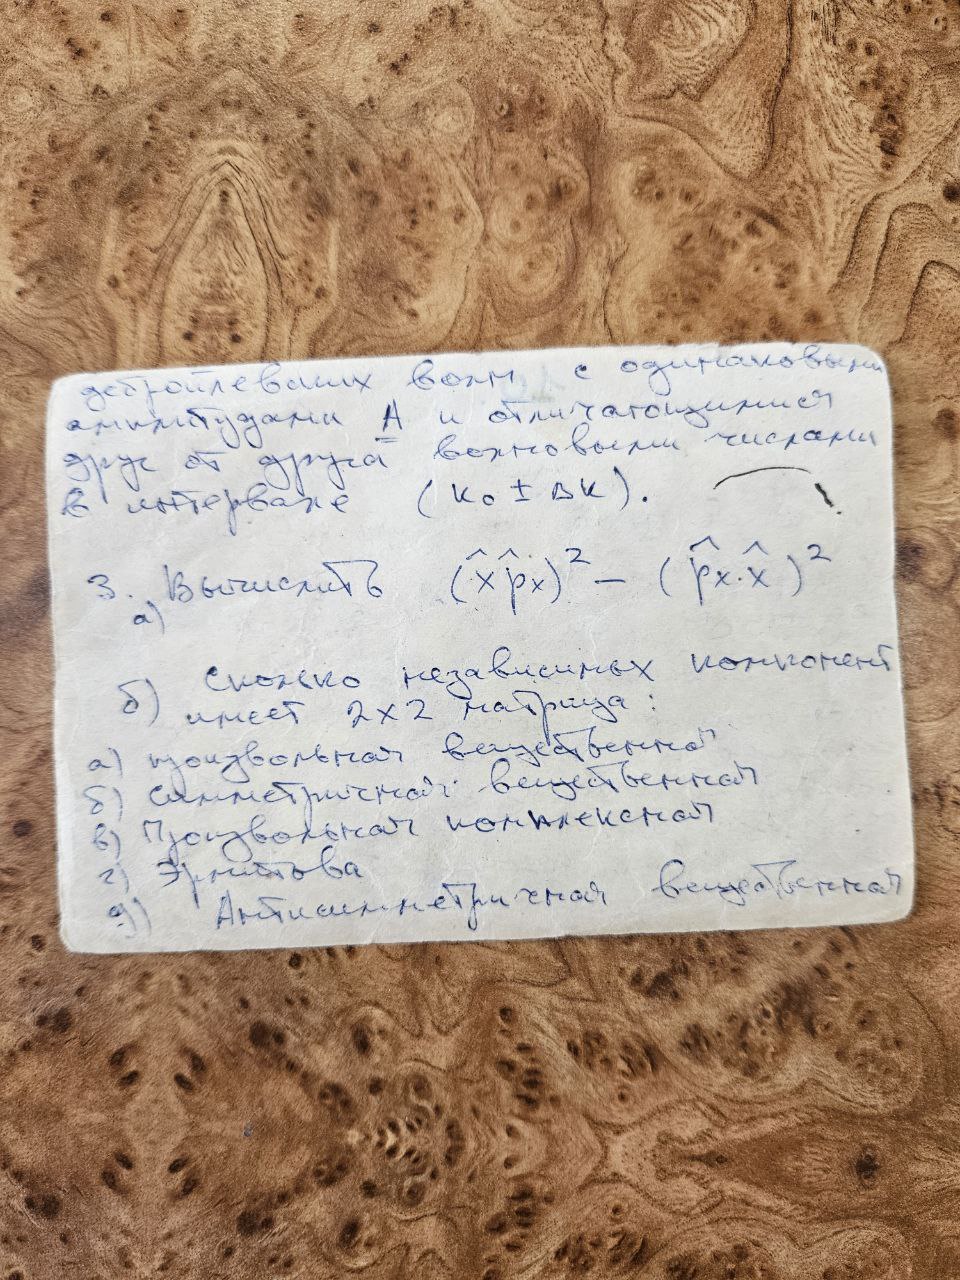 дебройлевских волн с одинаковыми
амплитудами A и отличающимися
друг от друга волновыми числами
в интервале (k₀ ± Δk).
3. Вычислить (x̂p̂ₓ)² – (p̂ₓ·x̂)²
а)
б) Сколько независимых компонент
имеет 2x2 матрица:
а) произвольная вещественная
б) симметричная вещественная
в) Произвольная комплексная
г) Эрмитова
д) Антисимметричная вещественная